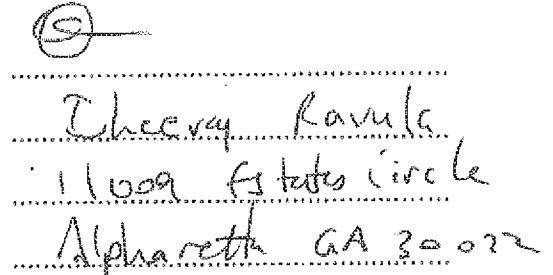 Dheeraj Ravula
11009 Estates Circle
Alpharetta GA 30022